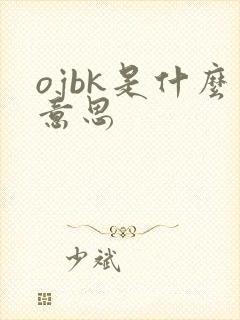 ojbk是什麼
意思
少斌